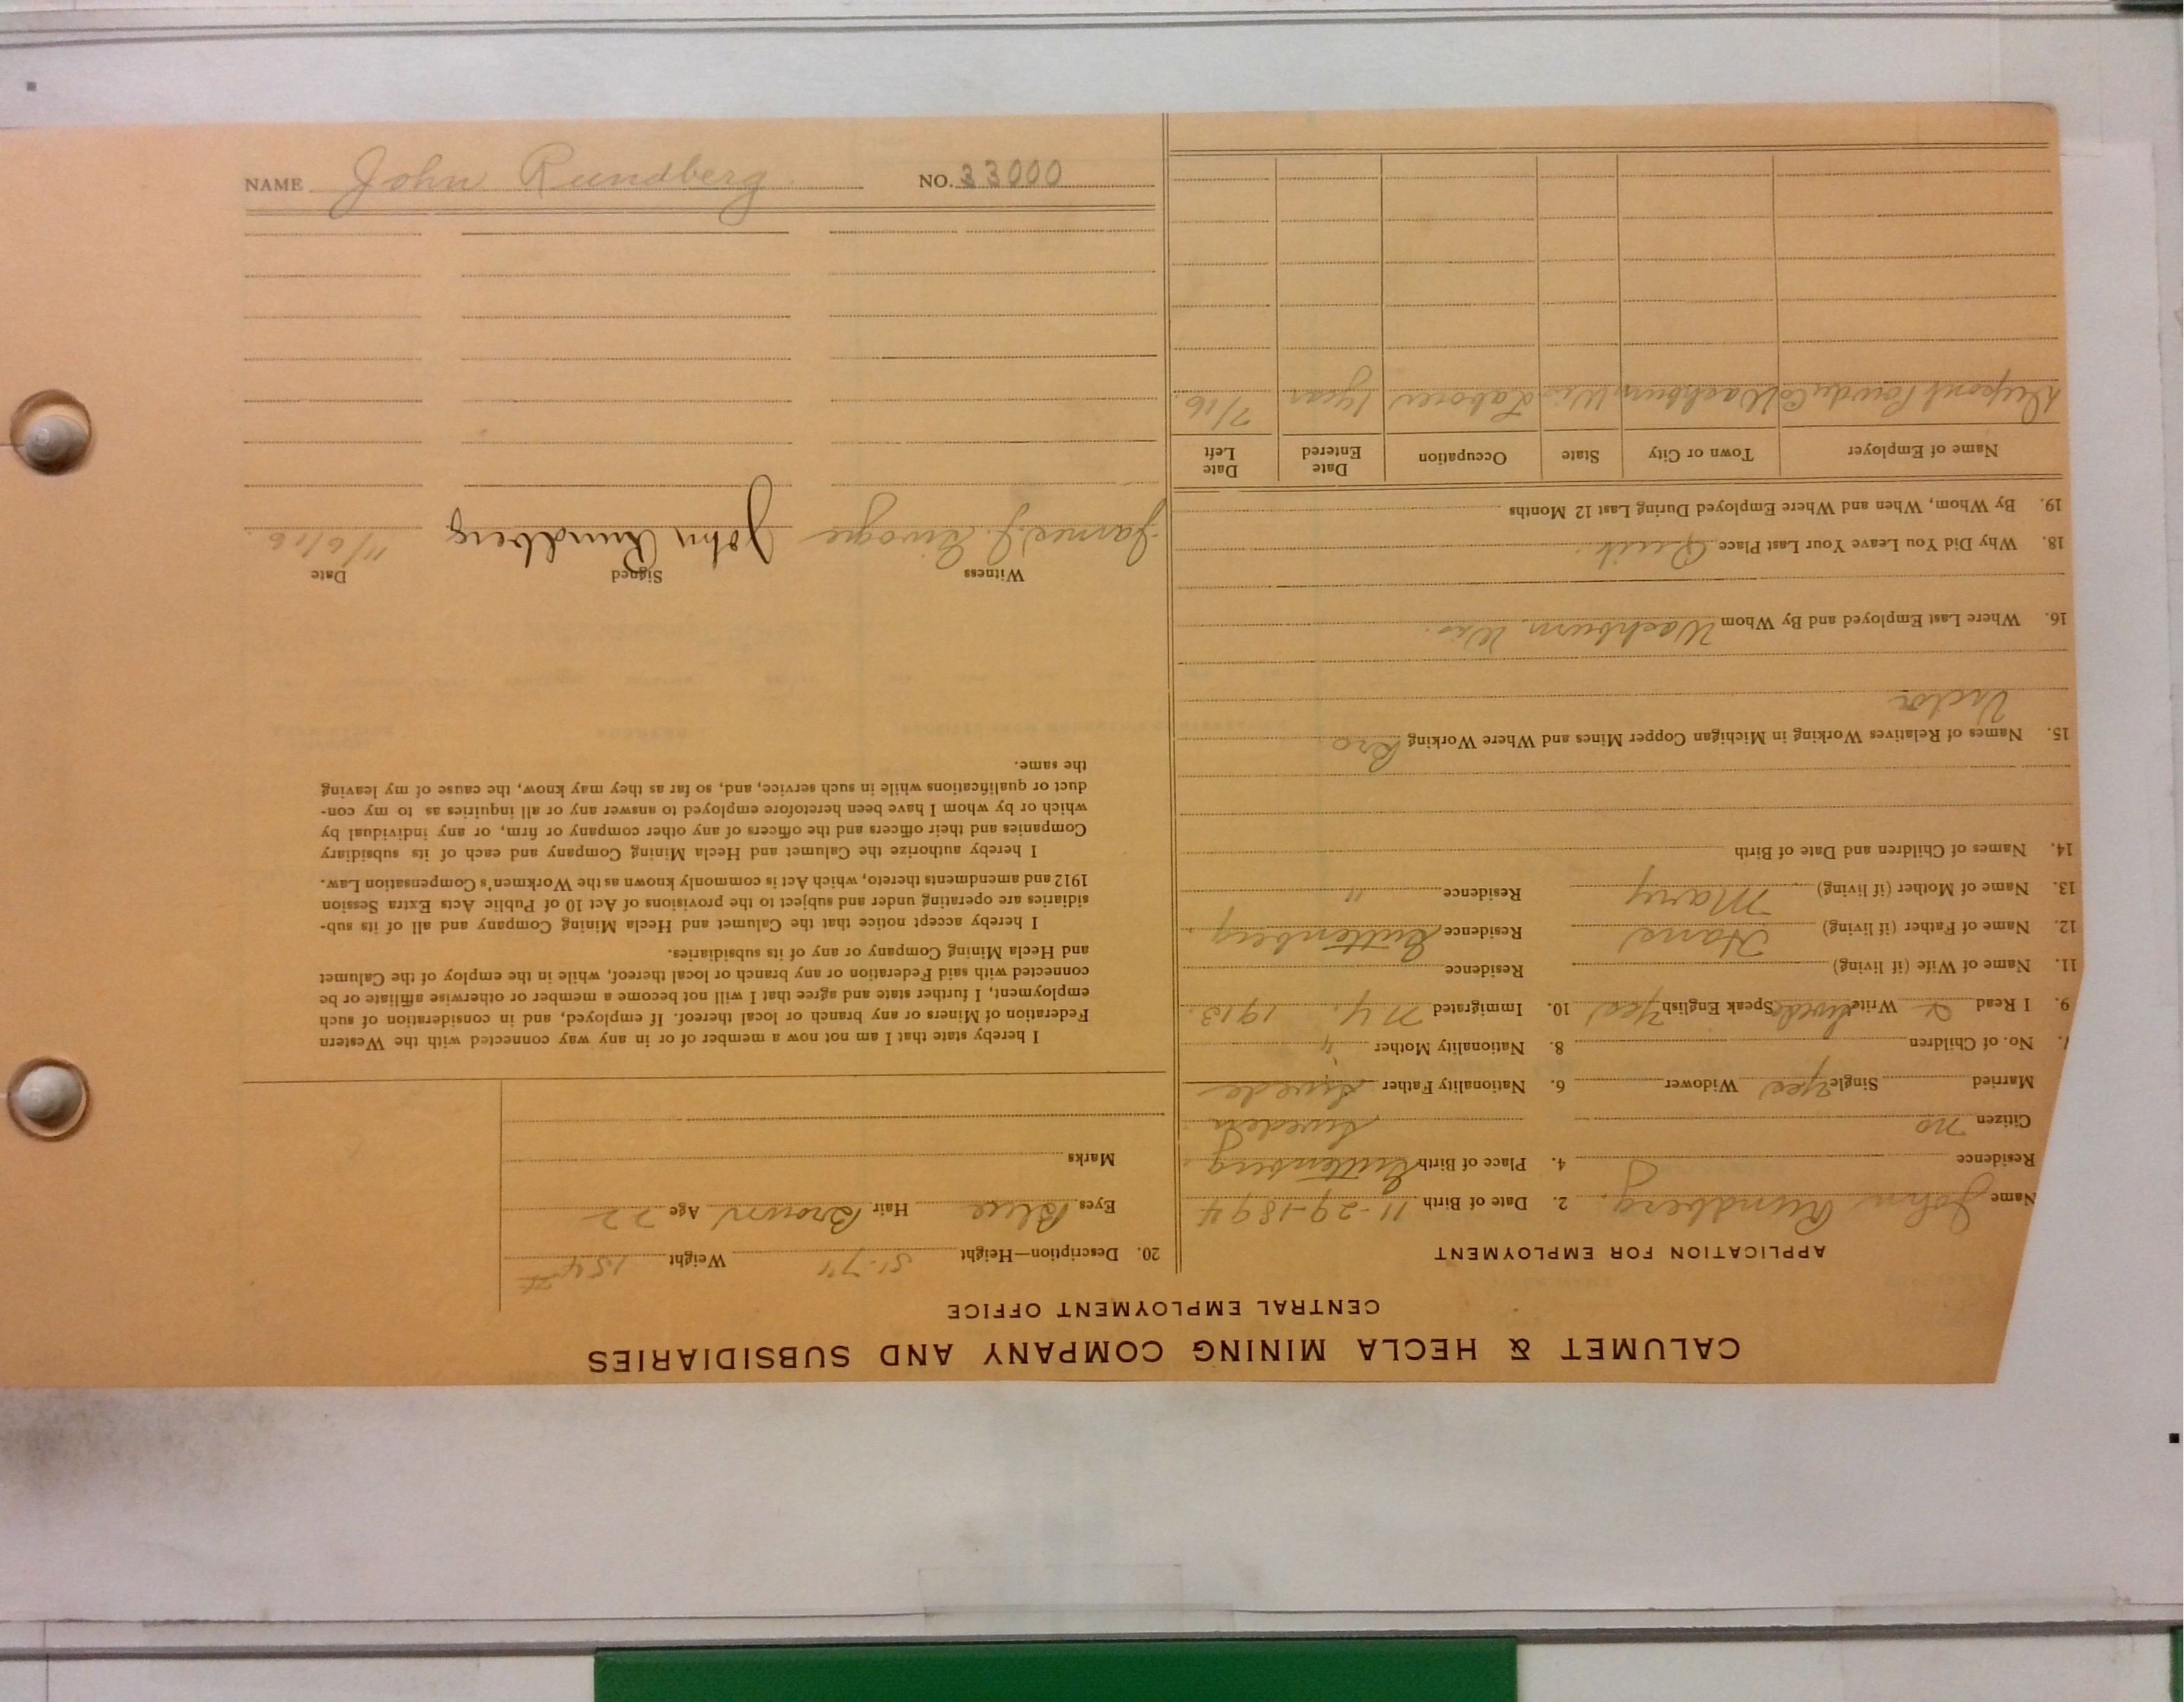 CALUMET & HECLA MINING COMPANY AND SUBSIDIARIES
CENTRAL EMPLOYMENT OFFICE
APPLICATION FOR EMPLOYMENT
Name John Rundberg. 2. Date of Birth 11-29-1894
Residence 4. Place of Birth Guttenberg
Citizen no Sweden
Married Single Yes Widower 6. Nationality Father Swede
7. No. of Children 8. Nationality Mother "
9. I Read & Write Swede Speak English Yes 10. Immigrated N.Y. 1913.
11. Name of Wife (if living) Residence
12. Name of Father (if living) Hans Residence Guttenberg
13. Name of Mother (if living) Mary Residence "
14. Names of Children and Date of Birth
15. Names of Relatives Working in Michigan Copper Mines and Where Working Bro.
Victor
16. Where Last Employed and By Whom Washburn Wis.
18. Why Did You Leave Your Last Place Quit.
19. By Whom, When and Where Employed During Last 12 Months
Name of Employer Town or City State Occupation Date Entered Date Left
Dupont Powder Co Washburn Wis Laborer 1 year 7/16
20. Description—Height 5'-7" Weight 154 #
Eyes Blue Hair Brown Age 22
Marks
I hereby state that I am not now a member of or in any way connected with the Western
Federation of Miners or any branch or local thereof. If employed, and in consideration of such
employment, I further state and agree that I will not become a member or otherwise affiliate or be
connected with said Federation or any branch or local thereof, while in the employ of the Calumet
and Hecla Mining Company or any of its subsidiaries.
I hereby accept notice that the Calumet and Hecla Mining Company and all of its sub-
sidiaries are operating under and subject to the provisions of Act 10 of Public Acts Extra Session
1912 and amendments thereto, which Act is commonly known as the Workmen's Compensation Law.
I hereby authorize the Calumet and Hecla Mining Company and each of its subsidiary
Companies and their officers and the officers of any other company or firm, or any individual by
which or by whom I have been heretofore employed to answer any or all inquiries as to my con-
duct or qualifications while in such service, and, so far as they may know, the cause of my leaving
the same.
Witness Signed Date
James J. John Rundberg 11/6/16.
NAME John Rundberg. NO. 33000